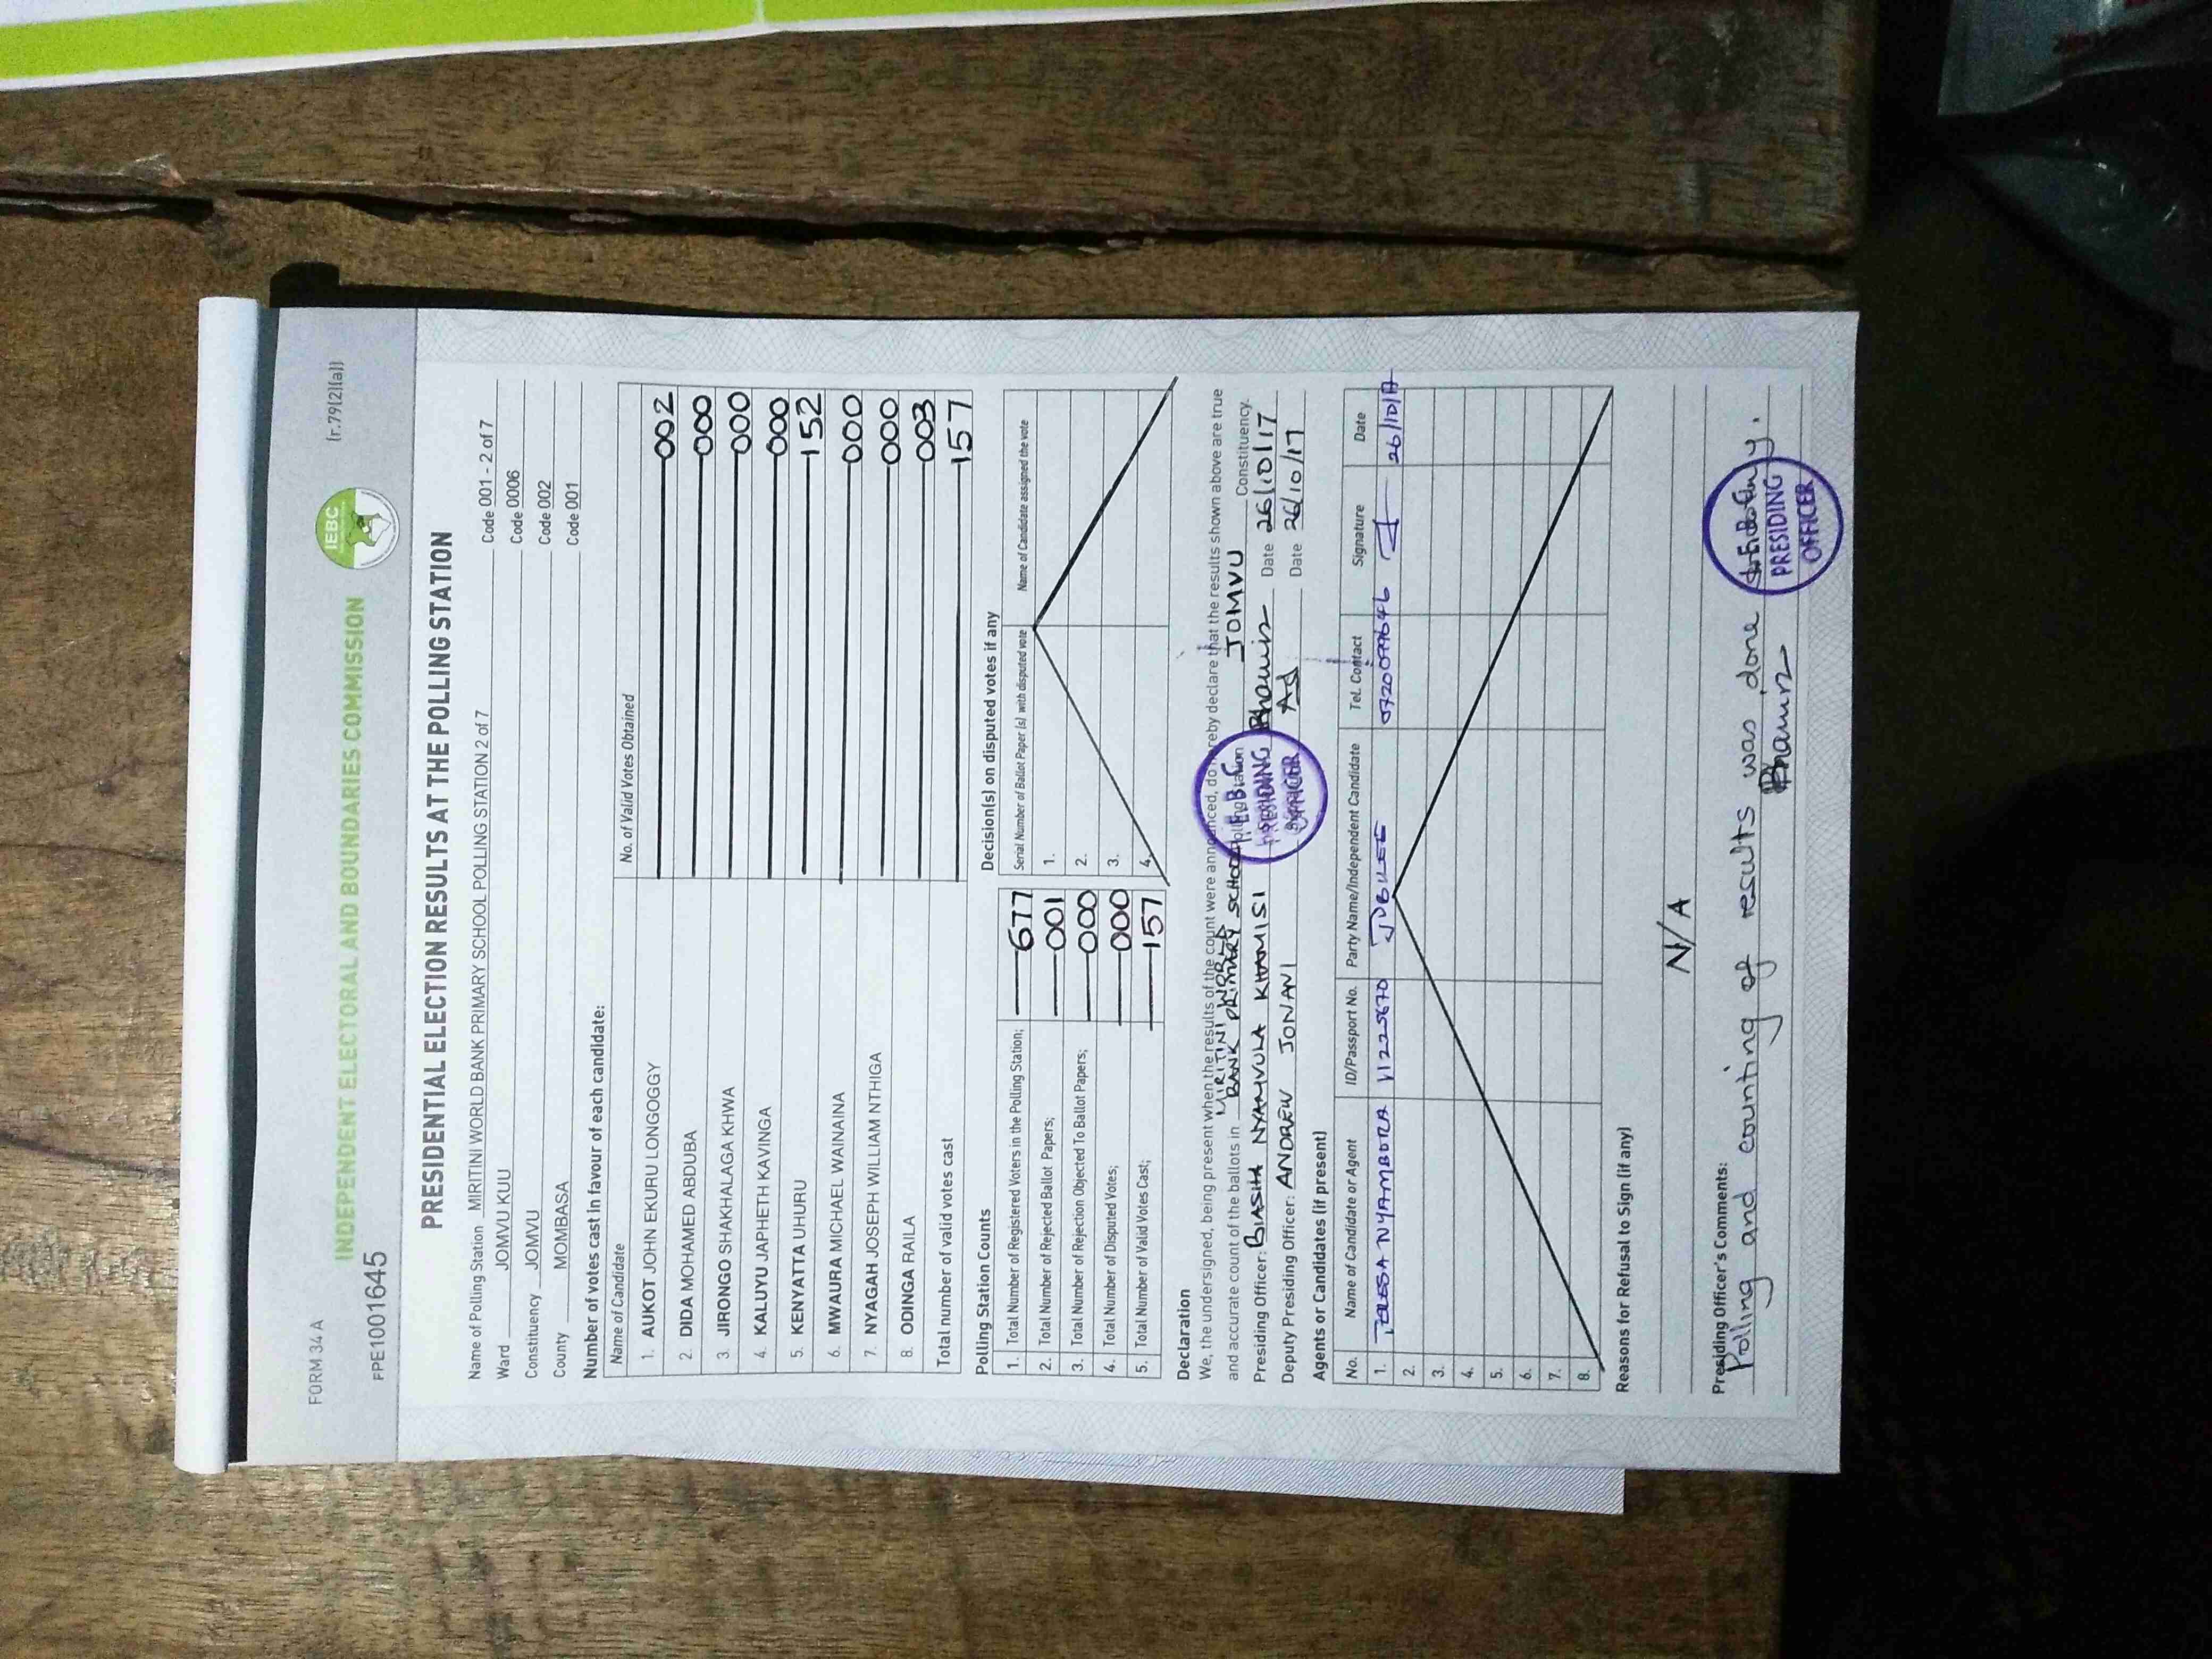 FORM 34 A
(r.79(2)(a))
INDEPENDENT ELECTORAL AND BOUNDARIES COMMISSION
IEBC
FPE1001645
PRESIDENTIAL ELECTION RESULTS AT THE POLLING STATION
Name of Polling Station MIRITINI WORLD BANK PRIMARY SCHOOL POLLING STATION 2 of 7 Code 001 - 2 of 7
Ward JOMVU KUU Code 0006
Constituency JOMVU Code 002
County MOMBASA Code 001
Number of votes cast in favour of each candidate:
Name of Candidate No. of Valid Votes Obtained
1. AUKOT JOHN EKURU LONGOGGY 002
2. DIDA MOHAMED ABDUBA 000
3. JIRONGO SHAKHALAGA KHWA 000
4. KALUYU JAPHETH KAVINGA 000
5. KENYATTA UHURU 152
6. MWAURA MICHAEL WAINAINA 000
7. NYAGAH JOSEPH WILLIAM NTHIGA 000
8. ODINGA RAILA 003
Total number of valid votes cast 157
Polling Station Counts
1. Total Number of Registered Voters in the Polling Station; 677
2. Total Number of Rejected Ballot Papers; 001
3. Total Number of Rejection Objected To Ballot Papers; 000
4. Total Number of Disputed Votes; 000
5. Total Number of Valid Votes Cast; 157
Decision(s) on disputed votes if any
Serial Number of Ballot Paper (s) with disputed vote Name of Candidate assigned the vote
1.
2.
3.
4.
Declaration
We, the undersigned, being present when the results of the count were announced, do hereby declare that the results shown above are true
and accurate count of the ballots in MIRITINI WORLD BANK PRIMARY SCHOOL polling station JOMVU Constituency.
Presiding Officer: BIASHA NYAMVULA KHAMISI Date 26/10/17
Deputy Presiding Officer: ANDREW JONANI Date 26/10/17
I.E.B.C PRESIDING OFFICER
Agents or Candidates (if present)
No. Name of Candidate or Agent ID/Passport No. Party Name/Independent Candidate Tel. Contact Signature Date
1. NYAMBORA 11225670 JUBILEE 26/10/17
2.
3.
4.
5.
6.
7.
8.
Reasons for Refusal to Sign (if any)
N/A
Presiding Officer's Comments:
Polling and counting of results was done
PRESIDING OFFICER